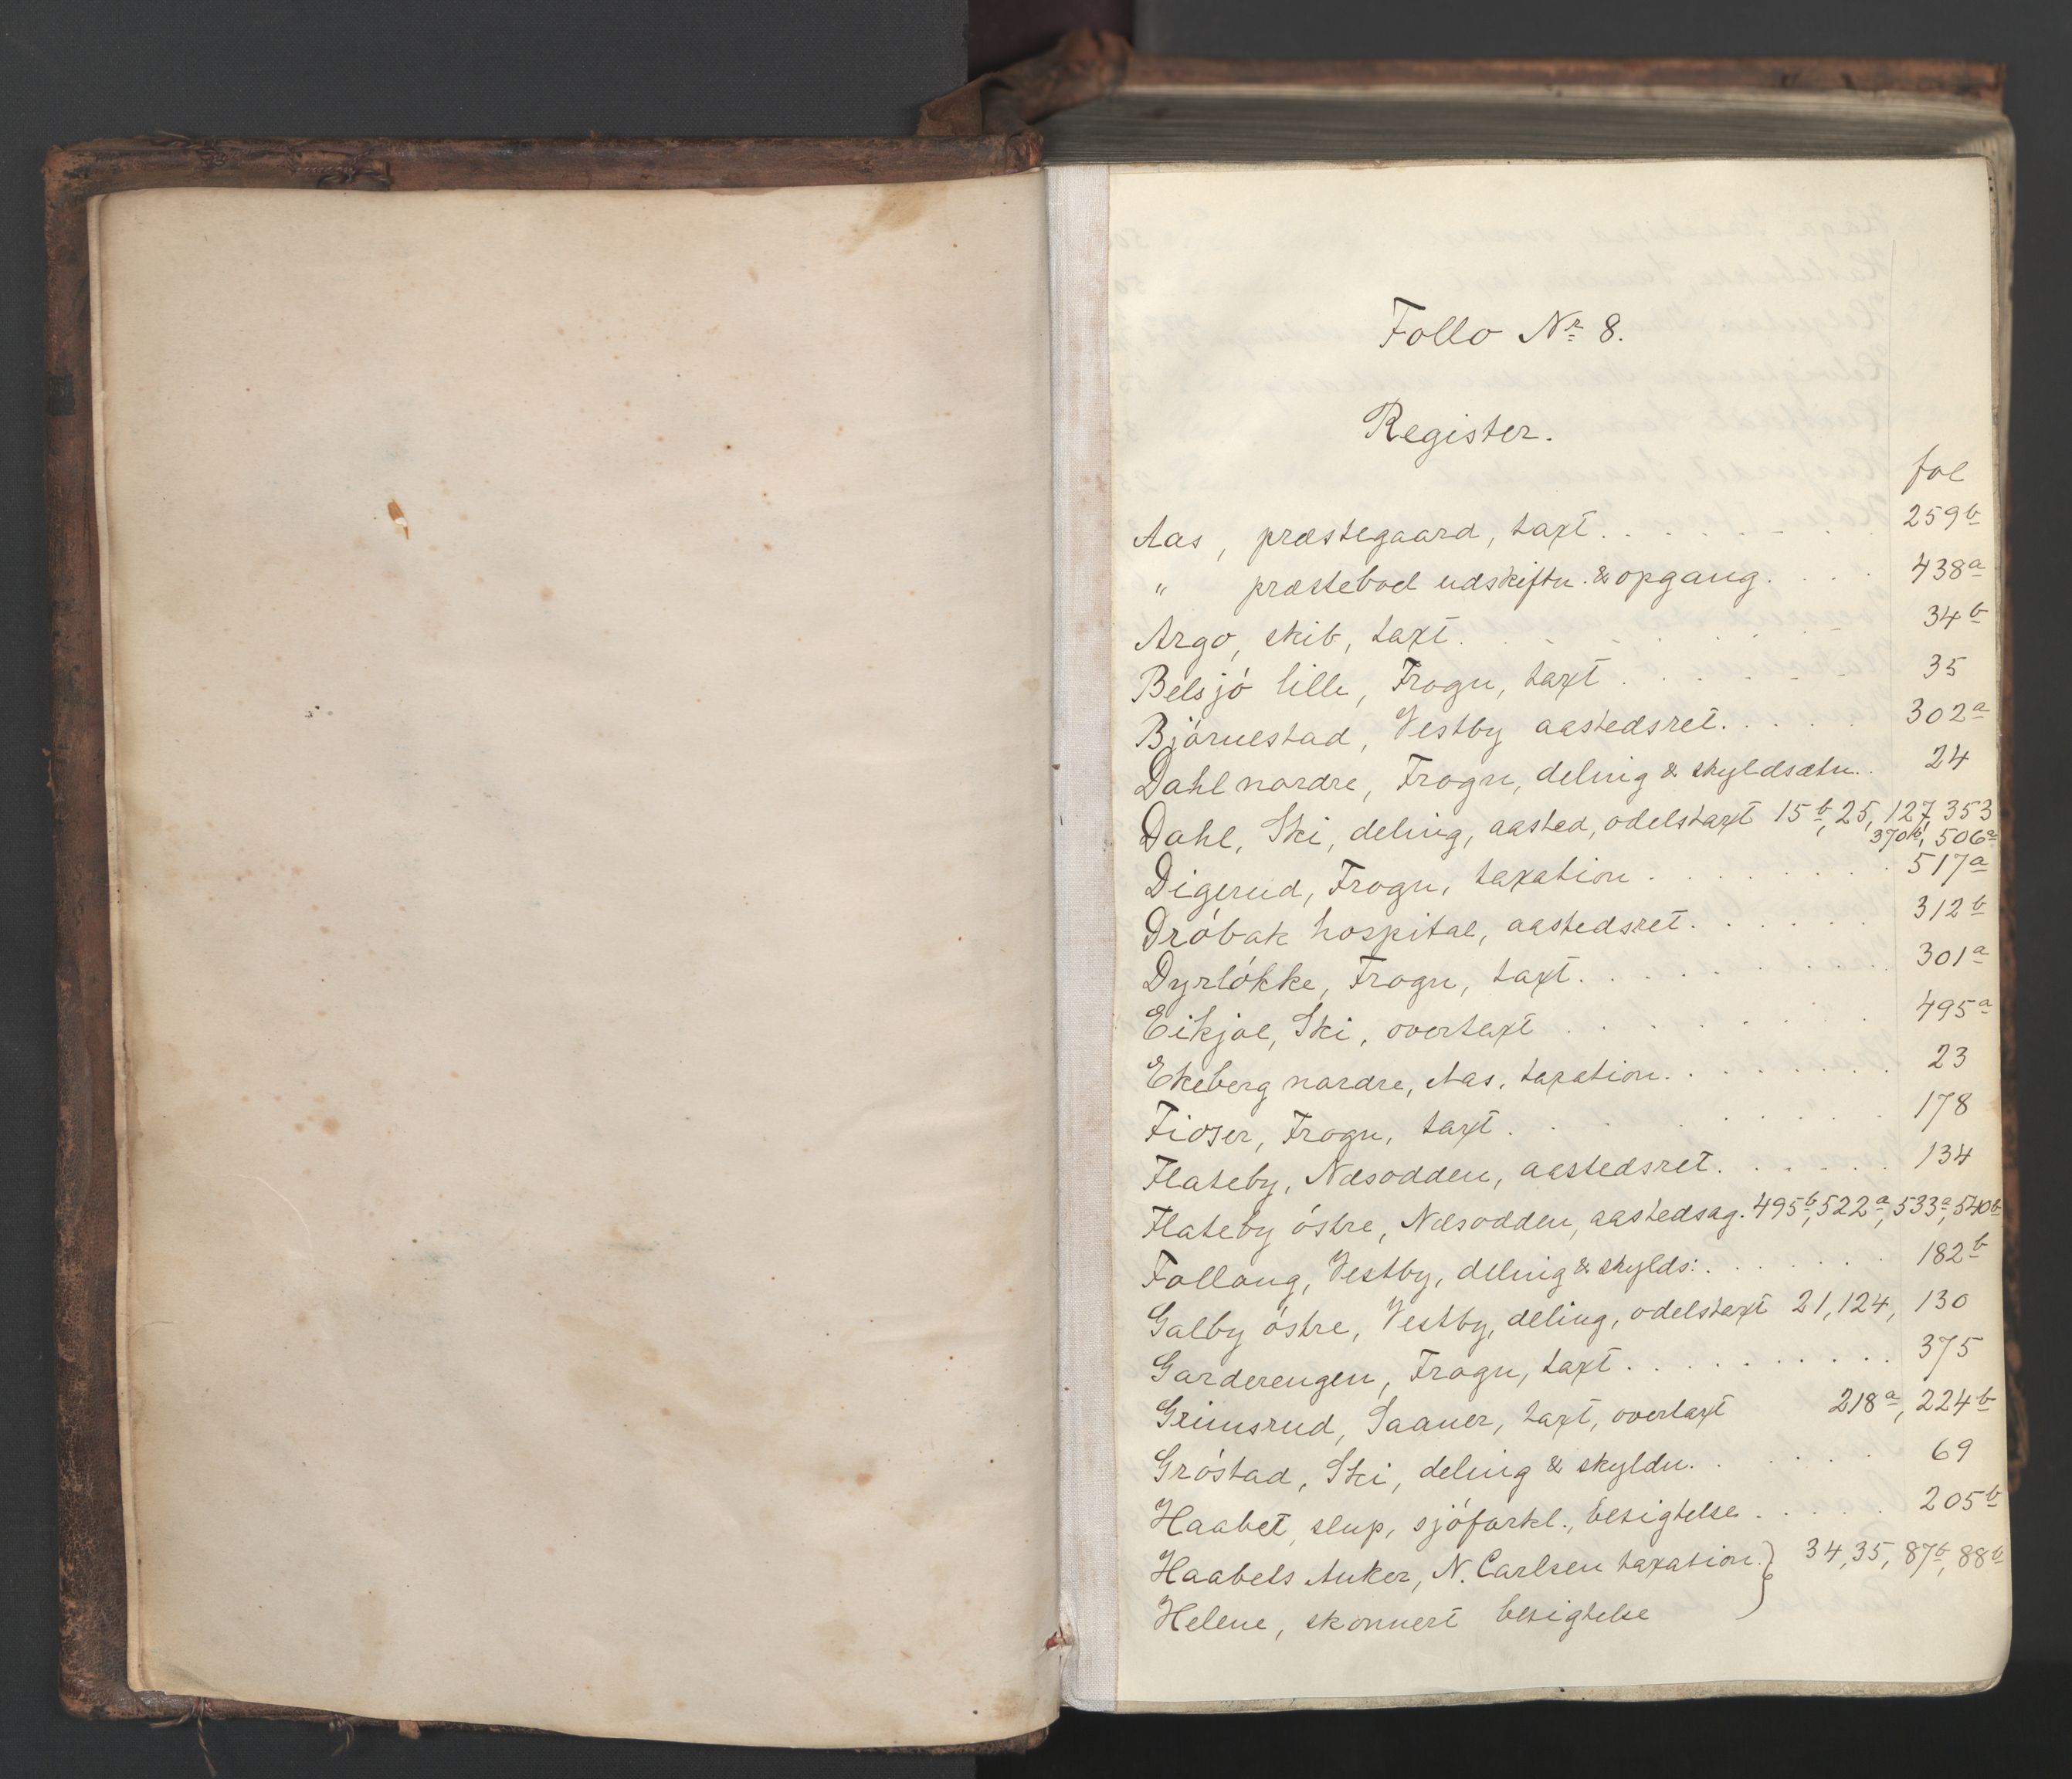 Follo Nr 8.
Register.
fol
Aas, præstegaard, taxt. . . . . . . 259b
" præstebol udskiftn. & opgang. . . . 438a
Argo, skib, taxt. . . . . . . . 34b
Belsjó lille, Frogn, taxt . . . . . . 35
Bjórnestad, Vestby aastedsret. . . . . 302a
Dahl nordre, Frogn, deling & skyldsætn. . 24
Dahl, Ski, deling, aasted, odelstaxt 15b, 25, 127, 353
370b, 506a
Digerud, Frogn, taxation . . . . . . . 517a
Dróbak hospital, aastedsret. . . . . . 312b
Dyrlókke, Frogn, taxt. . . . . . . . 301a
Eikjol, Ski, overtaxt . . . . . . . . 495a
Ekeberg nordre, Aas, taxation. . . . . . . 23
Fioser, Frogn, taxt . . . . . . . . 178
Flateby, Næsodden, aastedsret. . . . . . 134
Flateby óstre, Næsodden, aastedsag. 495b, 522a, 533a, 540b
Follaug, Vestby, deling & skylds: . . . . . . . 182b
Galby óstre, Vestby, deling, odelstaxt 21, 124, 130
Garderengen, Frogn, taxt . . . . . . . . . . 375
Grimsrud, Saaner, taxt, overtaxt 218a, 224b
Gróstad, Ski, deling & skyldn. . . . . . 69
Haabet, slup, sjóforkl., besigtelse . . . . . 205b
Haabets Anker, N. Carlsen taxation. } 34, 35, 87b, 88b
Helene, skonnert besigtelse